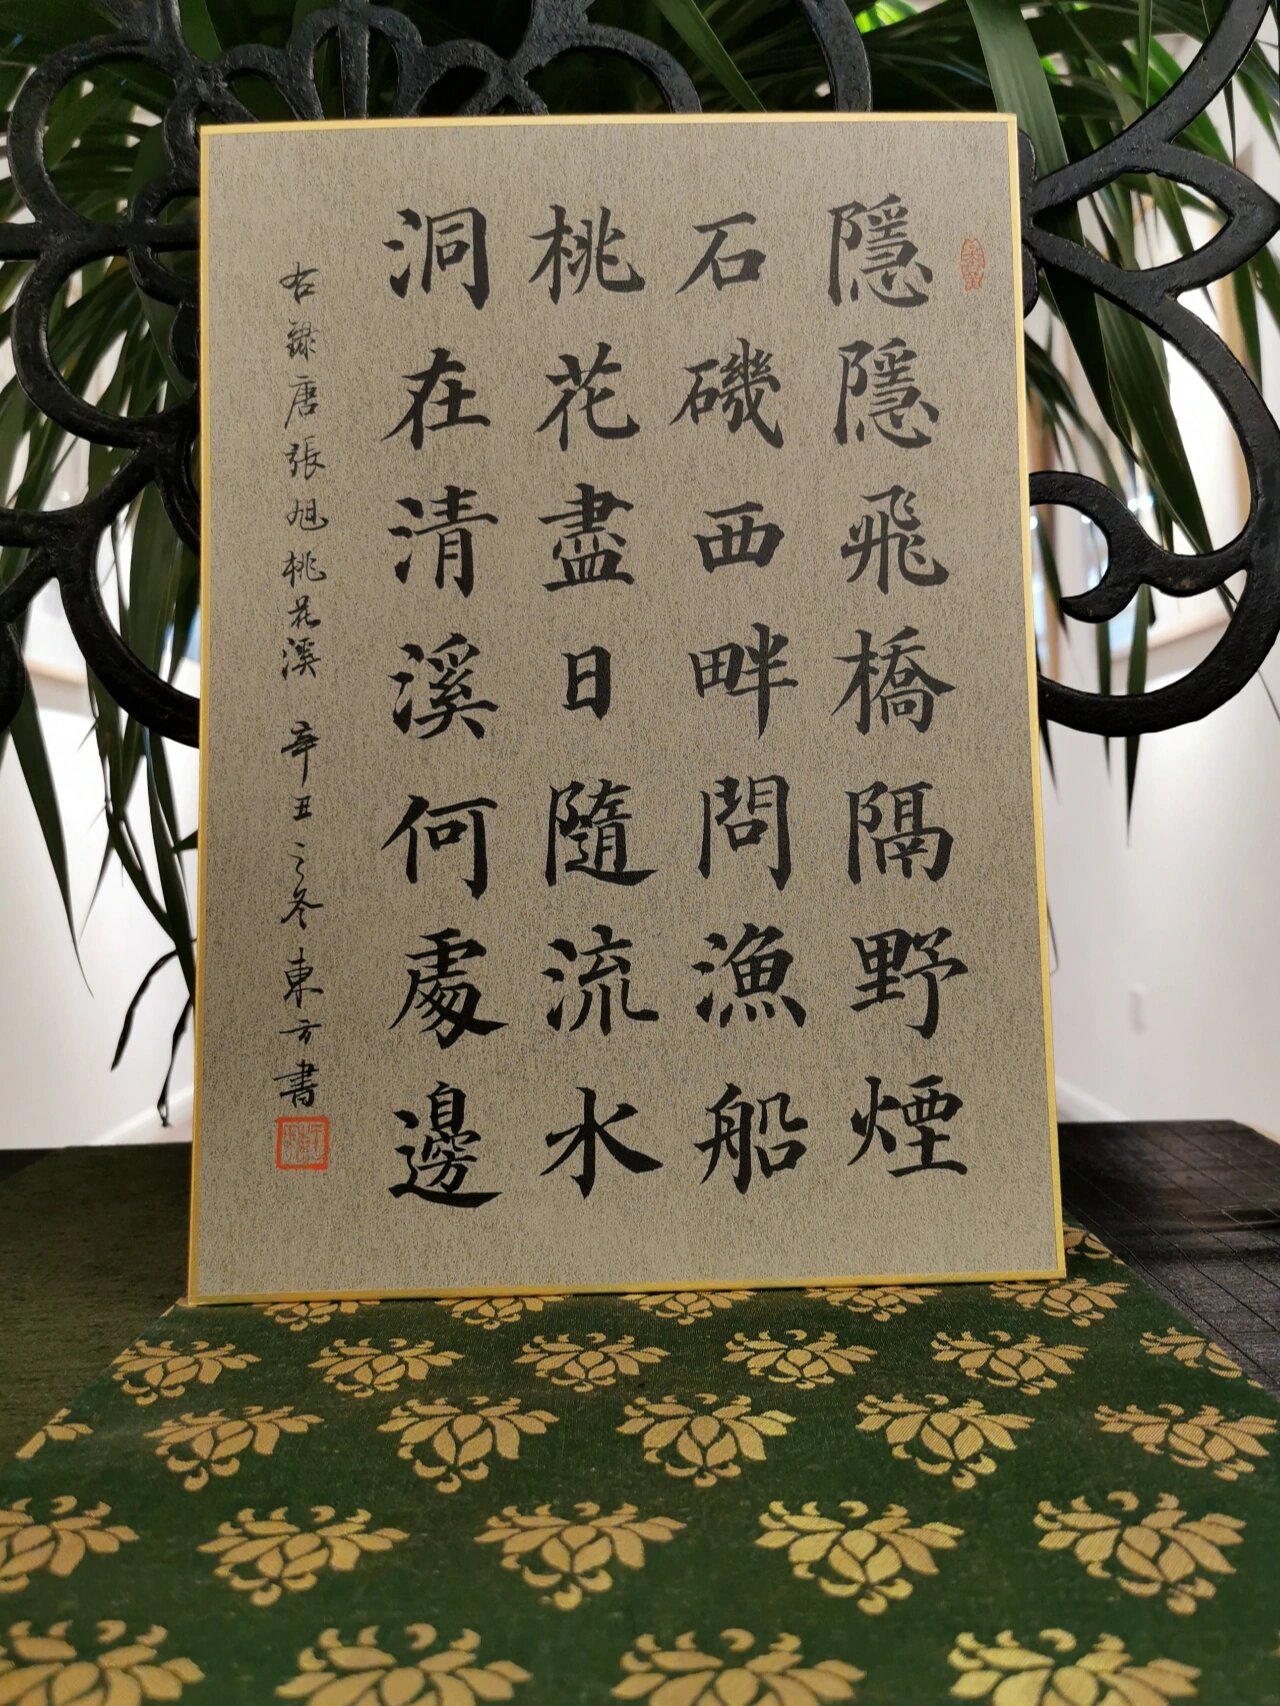 隱隱飛橋隔野煙
石磯西畔問漁船
桃花盡日隨流水
洞在清溪何處邊
右錄唐張旭桃花溪 辛丑之冬東方書